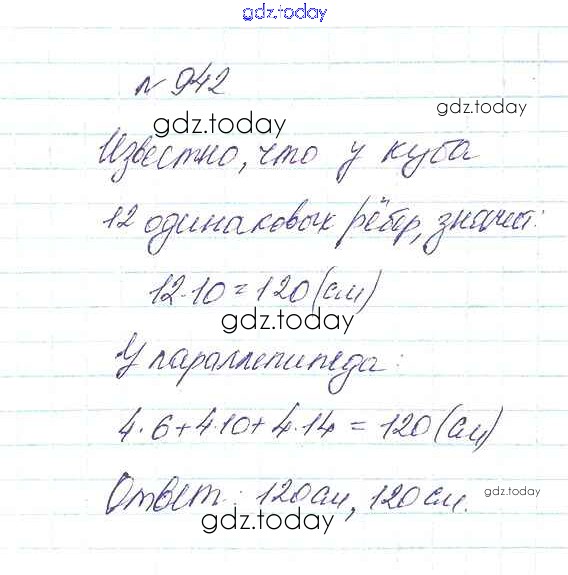 gdz.today
№ 942
gdz.today
gdz.today
Известно, что у куба
12 одинаковых рёбер, значит:
12·10=120(см)
gdz.today
У параллепипеда:
4·6+4·10+4·14=120(см)
Ответ: 120см, 120см.
gdz.today
gdz.today